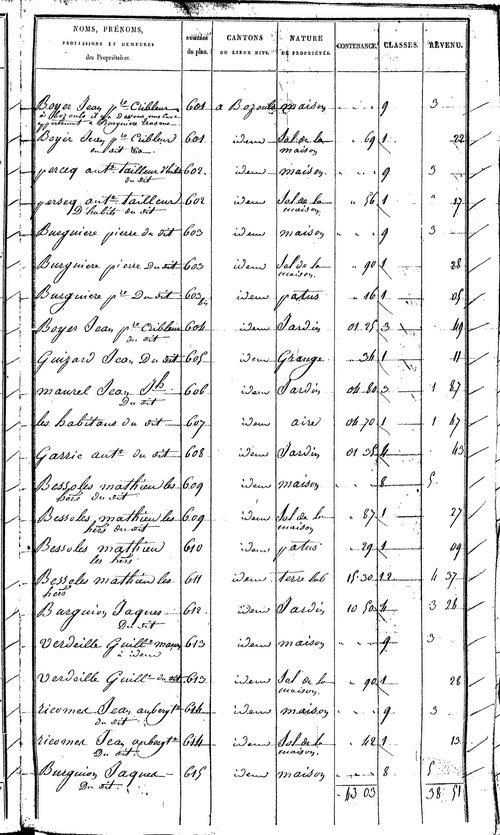 NOMS, PRÉNOMS, PROFESSIONS ET DEMEURES des Propriétaires. NUMÉROS du plan. CANTONS OU LIEUX DITS. NATURE DE PROPRIÉTÉS. CONTENANCE. CLASSES. REVENU.
Boyer Jean p.re Cribleur 601 a Bozouls maison 9 3
Boyer Jean p.re Cribleur 601 idem Sol de la maison 69 1 22
du dit
percq ant.e tailleur 602 idem maison 9 3
du dit
perseq ant.e tailleur 602 idem Sol de la maison 56 1 17
D'habits du dit
Burguiere pierre du dit 603 idem maison 9 3
Burguiere pierre du dit 603 idem Sol de la maison 90 1 28
Burguiere p.re Du dit 603 bis idem patus 16 1 05
Boyer Jean p.re Cribleur 604 idem Jardin 01 25 3 49
du dit
Guizard Jean Du dit 605 idem Grange 34 1 11
maurel Jean J.ph 606 idem Jardin 04 80 3 1 87
Du dit
les habitans du dit 607 idem aire 04 70 1 1 47
Garric ant.e du dit 608 idem Jardin 01 35 4 43
Bessoles mathieu les 609 idem maison 8 5
hers du dit
Bessoles mathieu les 609 idem Sol de la maison 87 1 27
hers du dit
Bessoles mathieu 610 idem patus 29 1 09
les hers
Bessoles mathieu les 611 idem terre lab 15 30 12 4 37
hers
Burguion Jaques 612 idem Jardin 10 50 4 3 28
Du dit
Verdeille Guill.e 613 idem maison 9 3
à idem
Verdeille Guill.e du dit 613 idem Sol de la maison 90 1 28
ricomes Jean 614 idem maison 9 3
du dit
ricomes Jean 614 idem Sol de la maison 42 1 13
Du dit
Burguion Jaques 615 idem maison 8 5
Du dit
43 03 38 51